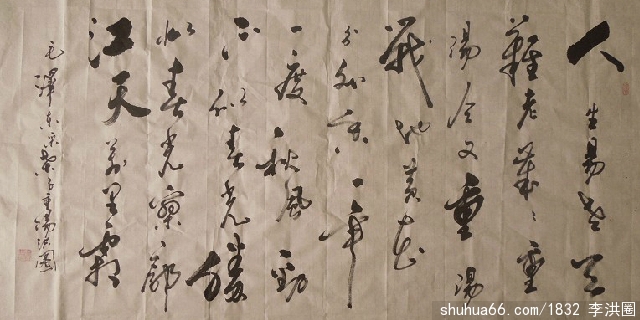 人生易老天
難老歲々重
陽今又重陽
戰地黄花
分外香一年
一度秋風勁
不似春光勝
似春光寥廓
江天萬里霜
毛澤东采桑子重陽洪圈
shuhua66.com/1832 李洪圈